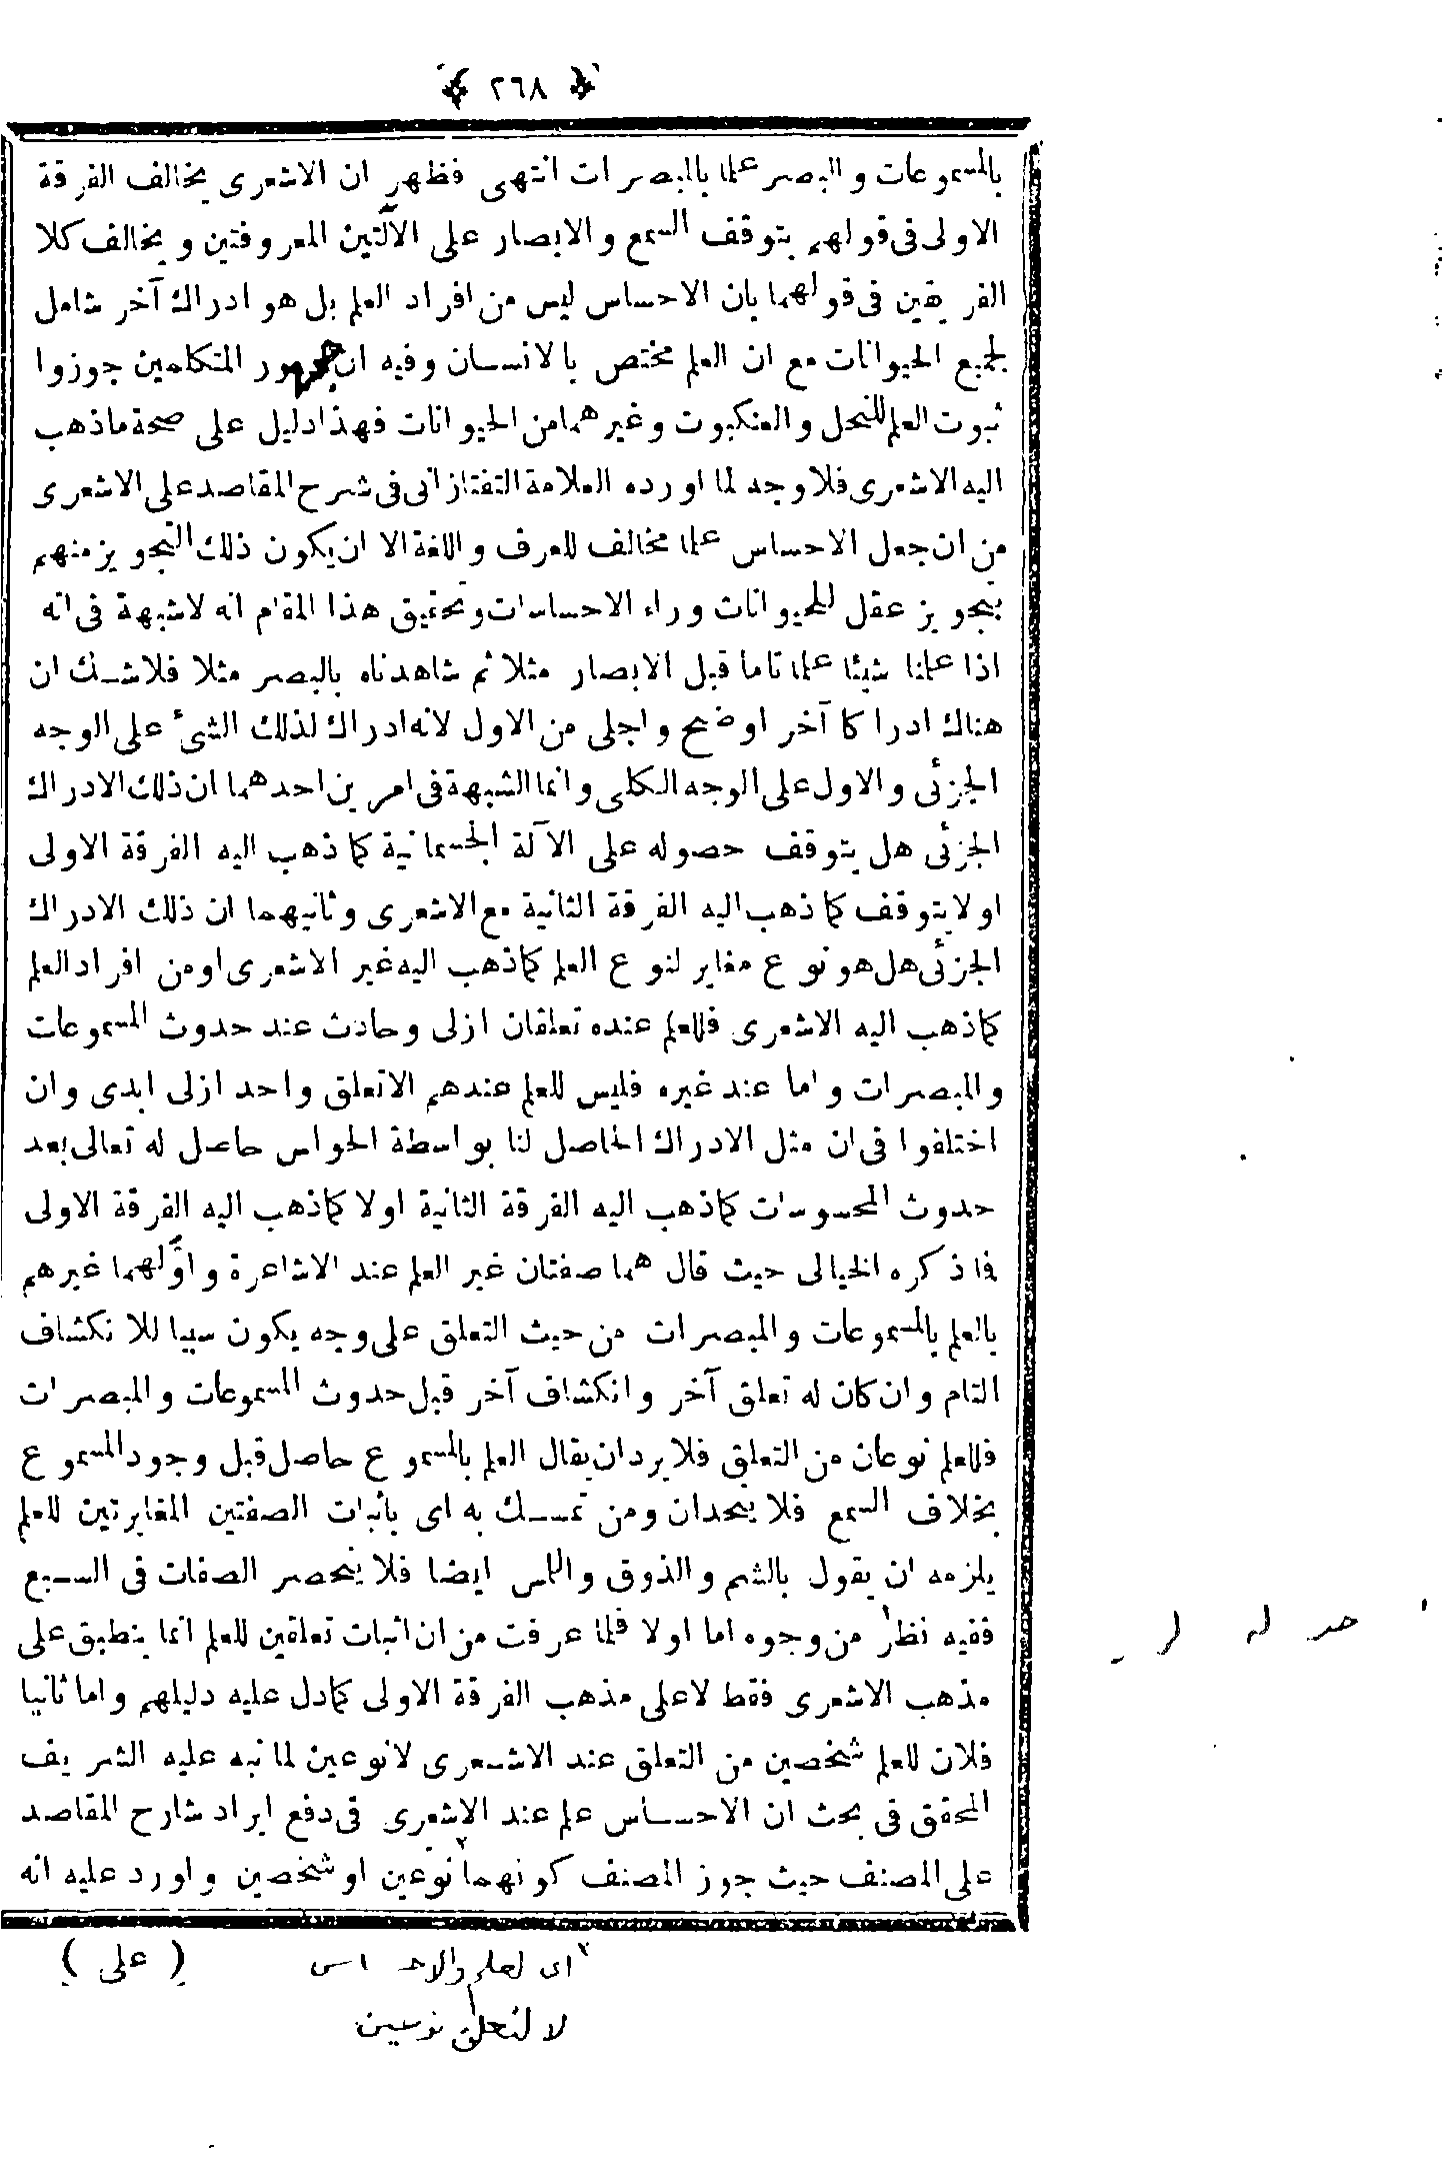 ﴿ ٢٦٨ ﴾
بالمسموعات والبصر علما بالمبصرات انتهى فظهر ان الاشعرى يخالف الفرقة
الاولى فى قولهم بتوقف السمع والابصار على الآلتين المعروفتين ويخالف كلا
الفريقين فى قولهما بان الاحساس ليس من افراد العلم بل هو ادراك آخر شامل
لجميع الحيوانات مع ان العلم مختص بالانسان وفيه ان جمهور المتكلمين جوزوا
ثبوت العلم للنحل والعنكبوت وغيرهما من الحيوانات فهذا دليل على صحة ما ذهب
اليه الاشعرى فلا وجه لما اورده العلامة التفتازانى فى شرح المقاصد على الاشعرى
من ان جعل الاحساس علما مخالف للعرف واللغة الا ان يكون ذلك التجويز منهم
بتجويز عقل للحيوانات وراء الاحساسات وتحقيق هذا المقام انه لا شبهة فى انه
اذا علمنا شيئا علما تاما قبل الابصار مثلا ثم شاهدناه بالبصر مثلا فلا شك ان
هناك ادراكا آخر اوضح واجلى من الاول لانه ادراك لذلك الشئ على الوجه
الجزئى والاول على الوجه الكلى وانما الشبهة فى امرين احدهما ان ذلك الادراك
الجزئى هل يتوقف حصوله على الآلة الجسمانية كما ذهب اليه الفرقة الاولى
او لا يتوقف كما ذهب اليه الفرقة الثانية مع الاشعرى وثانيهما ان ذلك الادراك
الجزئى هل هو نوع مغاير لنوع العلم كما ذهب اليه غير الاشعرى او من افراد العلم
كما ذهب اليه الاشعرى فللعلم عنده تعلقان ازلى وحادث عند حدوث المسموعات
والمبصرات واما عند غيره فليس للعلم عندهم الا تعلق واحد ازلى ابدى وان
اختلفوا فى ان مثل الادراك الحاصل لنا بواسطة الحواس حاصل له تعالى بعد
حدوث المحسوسات كما ذهب اليه الفرقة الثانية او لا كما ذهب اليه الفرقة الاولى
فما ذكره الخيالى حيث قال هما صفتان غير العلم عند الاشاعرة واوّلهما غيرهم
بالعلم بالمسموعات والمبصرات من حيث التعلق على وجه يكون سببا للانكشاف
التام وان كان له تعلق آخر وانكشاف آخر قبل حدوث المسموعات والمبصرات
فللعلم نوعان من التعلق فلا يرد ان يقال العلم بالمسموع حاصل قبل وجود المسموع
بخلاف السمع فلا يتحدان ومن تمسك به اى باثبات الصفتين المغايرتين للعلم
يلزمه ان يقول بالشم والذوق واللمس ايضا فلا ينحصر الصفات فى السبع
ففيه نظر من وجوه اما اولا فلما عرفت من ان اثبات تعلقين للعلم انما ينطبق على
مذهب الاشعرى فقط لا على مذهب الفرقة الاولى كما دل عليه دليلهم واما ثانيا
فلان للعلم شخصين من التعلق عند الاشعرى لا نوعين لما نبه عليه الشريف
المحقق فى بحث ان الاحساس علم عند الاشعرى فى دفع ايراد شارح المقاصد
على المصنف حيث جوز المصنف كونهما ٢ نوعين او شخصين واورد عليه انه
( على )
٢ اى لعلم والاحساس
لا لتعلق نوعين